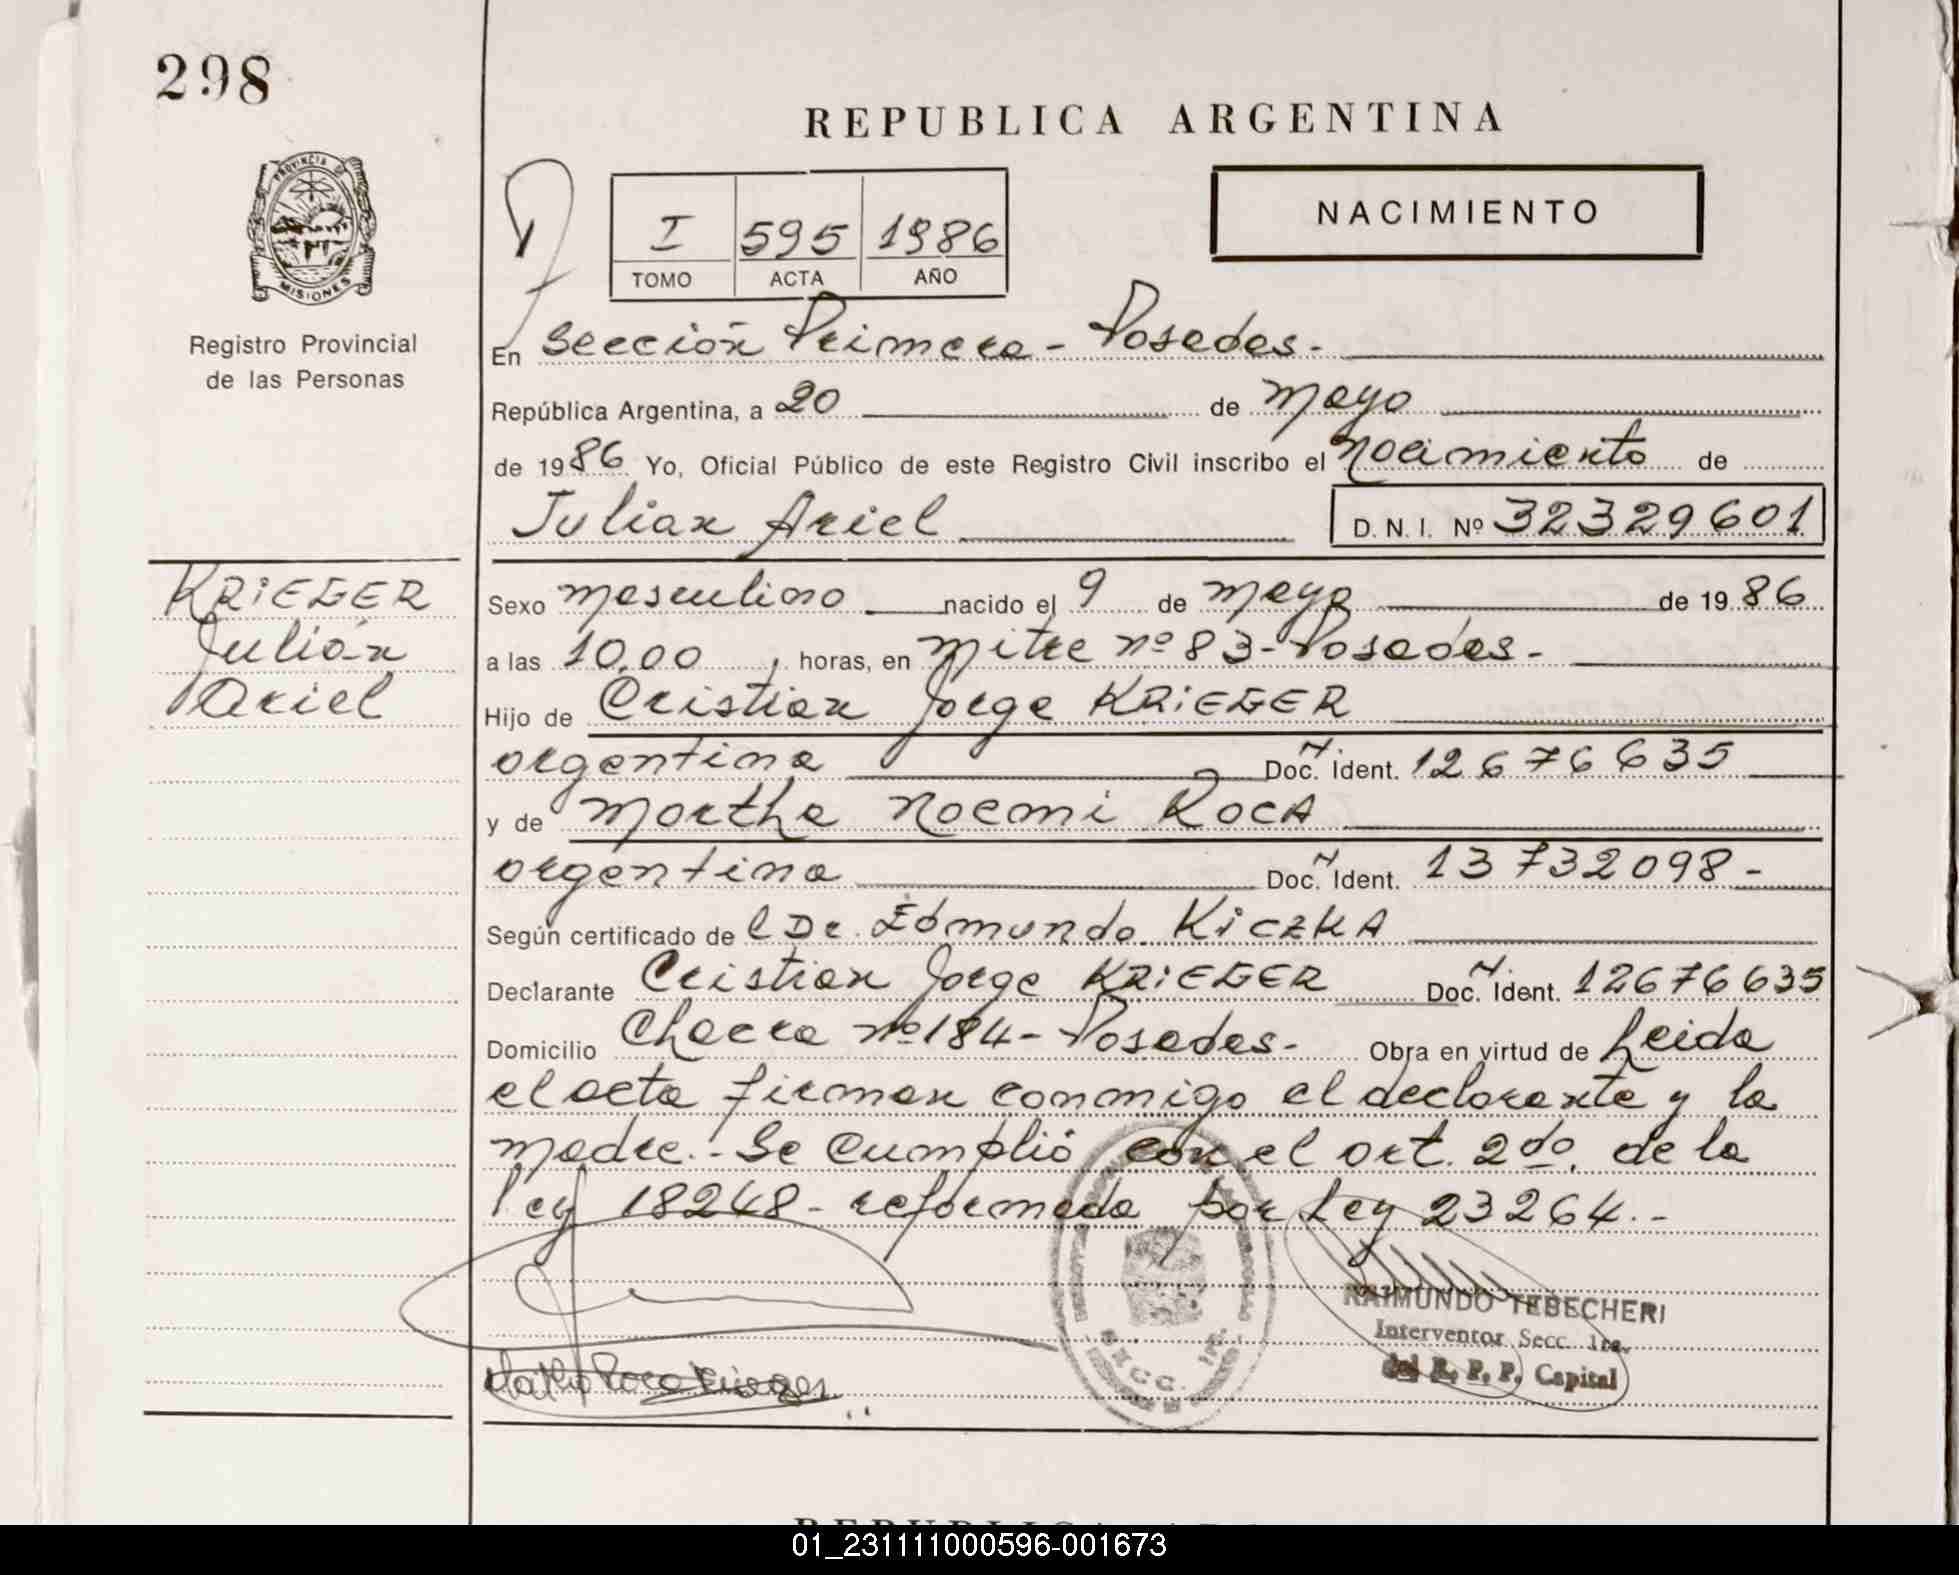 298
REPUBLICA ARGENTINA
PROVINCIA DE
MISIONES
Registro Provincial
de las Personas
I 595 1986
TOMO ACTA AÑO
NACIMIENTO
En Sección Primera - Posadas.
República Argentina, a 20 de mayo
de 1986 Yo, Oficial Público de este Registro Civil inscribo el nacimiento de
Julian Ariel D. N. I. Nº 32329601
KRiEGER
Julián
Ariel
Sexo masculino nacido el 9 de mayo de 1986
a las 10,00, horas, en mitre nº 83 - Posadas -
Hijo de Cristian Jorge KRiEGER
argentina Doc. Ident. 12676635
y de Martha Noemi ROCA
argentina Doc. Ident. 13732098 -
Según certificado de l Dr. Edmundo KiCZKA
Declarante Cristian Jorge KRiEGER Doc. Ident. 12676635
Domicilio Chacra nº 184 - Posadas - Obra en virtud de Leida
el acta firman conmigo el declarante y la
madre. - Se cumplió con el art. 2do. de la
ley 18248 - reformada por Ley 23264. -
SECC. 1ra.
RAIMUNDO TEBECHERI
Interventor Secc. 1ra.
del R. P. P. Capital
01_231111000596-001673